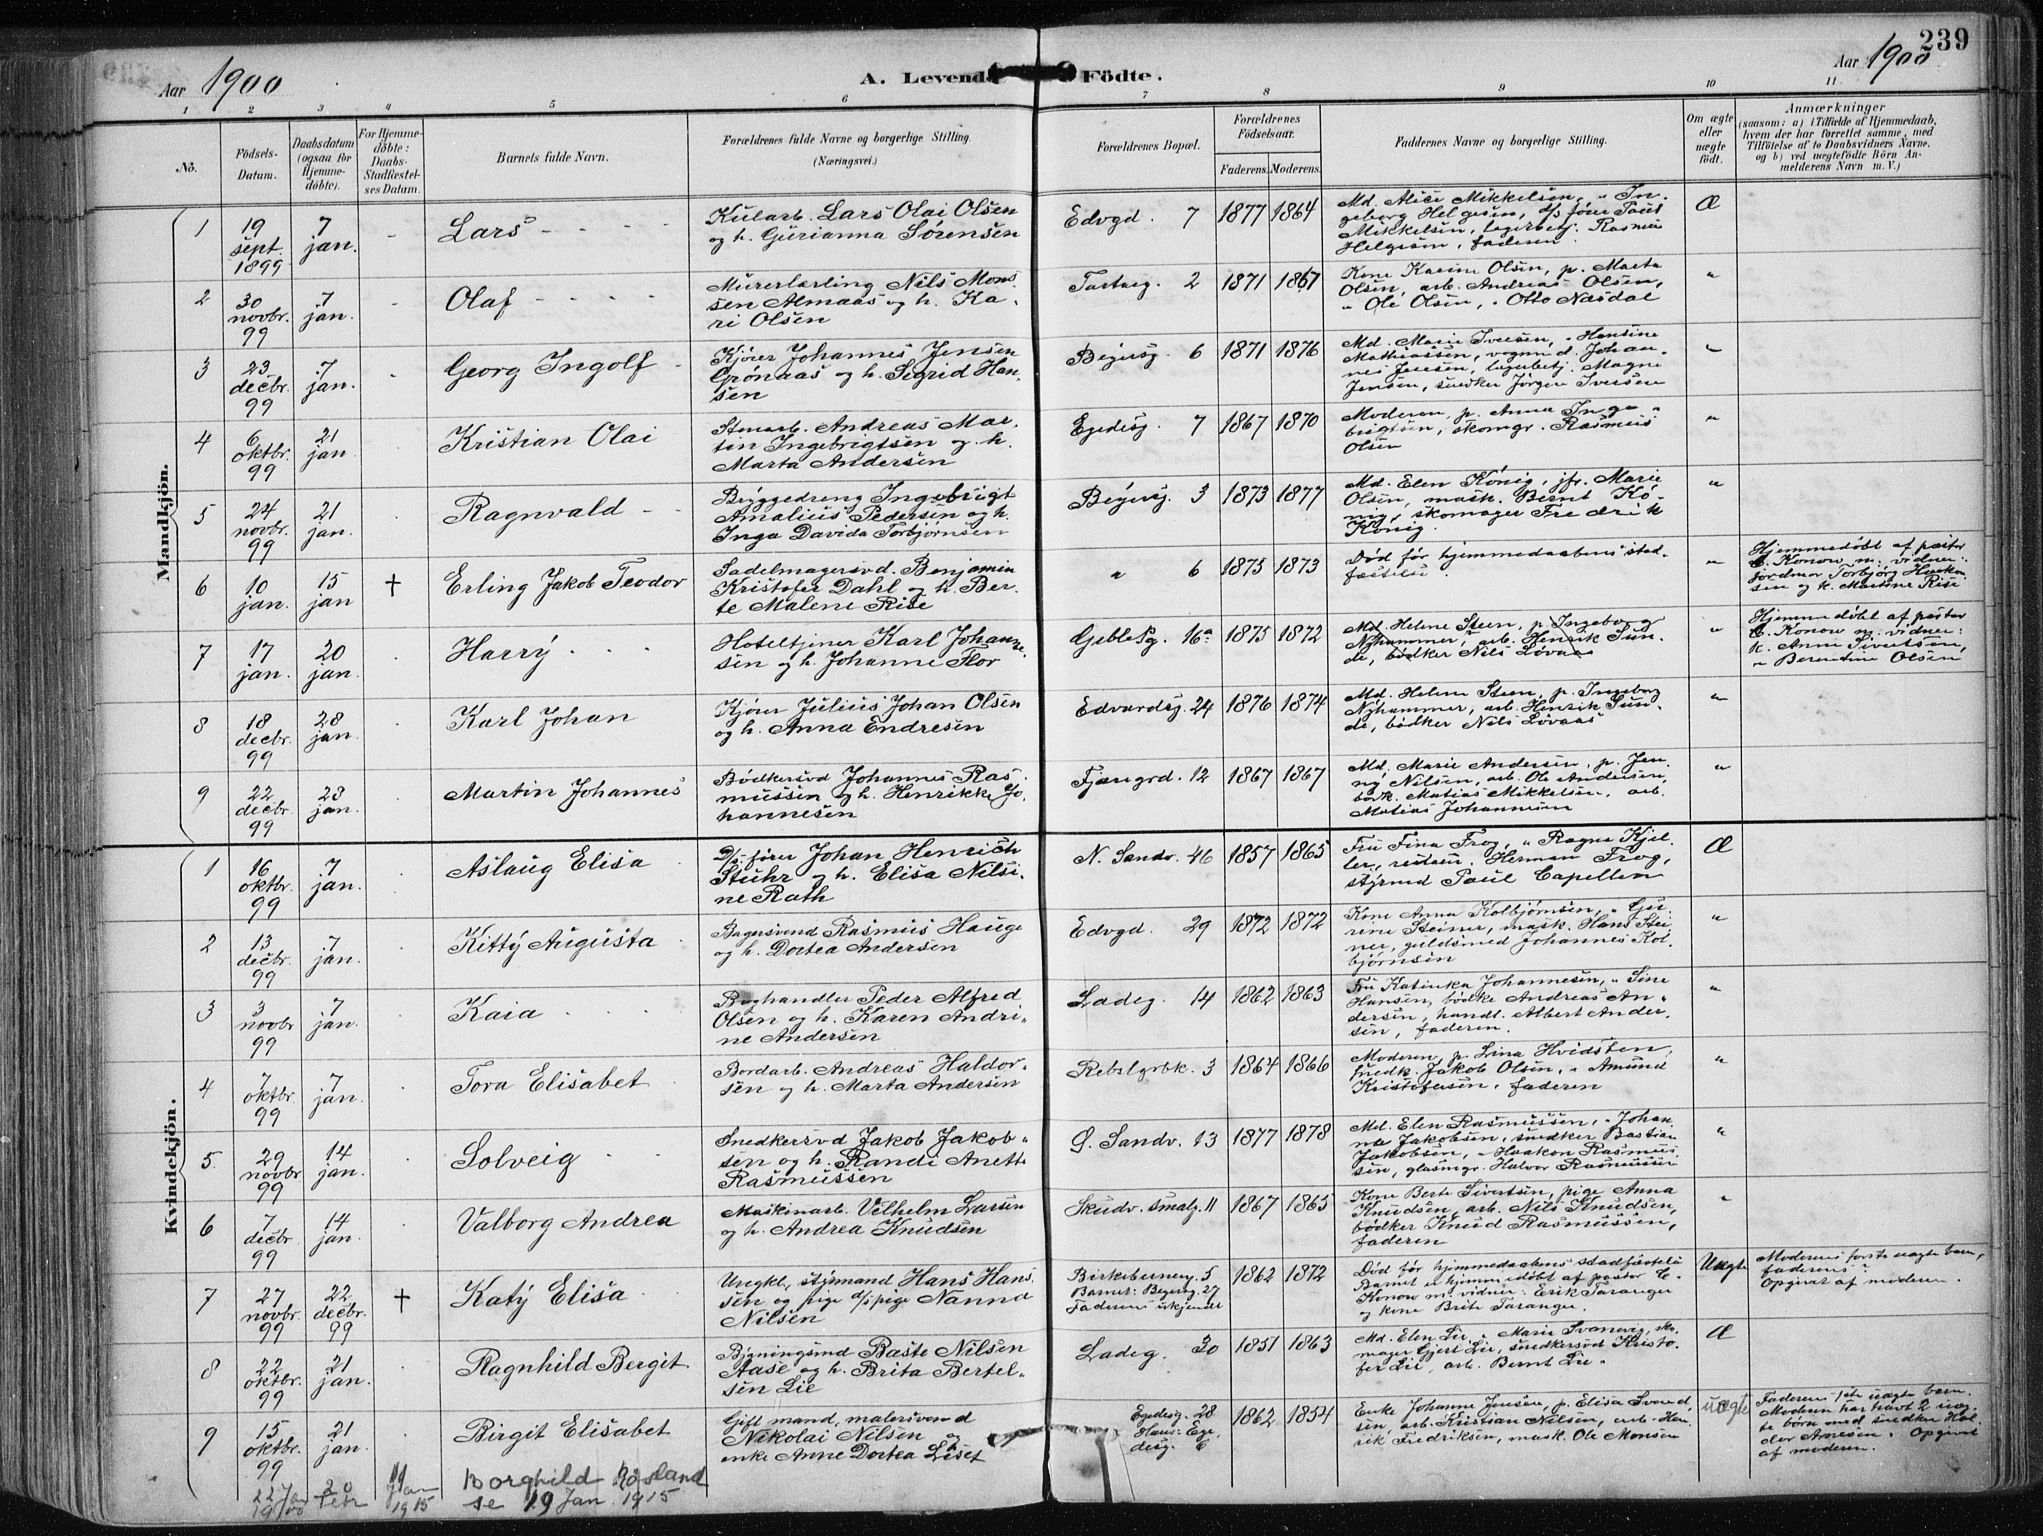 239
Aar 1900
A. Levende Födte.
Aar 1900
1 2 3 4 5 6 7 8 9 10 11
No.
Födsels-Datum.
Daabsdatum (ogsaa for Hjemmedöbte).
For Hjemmedöbte: Daabs-Stadfæstelses Datum.
Barnets fulde Navn.
Forældrenes fulde Navne og borgerlige Stilling.
(Næringsvei.)
Forældrenes Bopæl.
Forældrenes Födselsaar.
Faderens. Moderens.
Faddernes Navne og borgerlige Stilling.
Om ægte eller uægte födt.
Anmærkninger
(saasom: a) i Tilfælde af Hjemmedaab,
hvem der har forrettet samme, med
Tilföielse af to Daabsvidners Navne,
og b) ved uægtefödte Börn An-
melderens Navn m. V.)
Mandkjön.
1 19 sept. 1899 7 jan. Lars
Kularb. Lars Olai Olsen
og h. Gurianna Sörensen
Edvgd. 7 1877 1864
Md. Alice Mikkelsen, " In-
geborg Helgesen, d/s förer Paul
Mikkelsen, lagerbetj. Rasmus
Helgesen, faderen.
Æ
2 30 novbr. 99 7 jan. Olaf
Murerlærling Nils Mons
sen Almaas og h. Ka-
ri Olsen
2 1871 1867
Kone Karine Olsen, p. Marta
Olsen, arb. Andreas Olsen,
" Ole Olsen, " Otto Næsdal
"
3 23 decbr. 99 7 jan. Georg Ingolf
Kjörer Johannes Jensen
Grönaas og h. Sigrid Han-
sen
Beyersg. 6 1871 1876
Md. Marie Iversen, " Hansine
Mathiassen, vognm d. Johan-
nes Jensen, lagerbetj. Magne
Jensen, snedker Jörgen Iversen
"
4 6 oktbr. 99 21 jan. Kristian Olai
Stenarb. Andreas Mar-
tin Ingebrigtsen og h.
Marta Andersen
Egedesg. 7 1867 1870
Moderen, p. Anna Inge-
brigtsen, skomgr. Rasmus
Olsen
"
5 24 novbr. 99 21 jan. Ragnvald
Bryggedreng Ingebrigt
Amalius Pedersen og h.
Inga Davida Torbjörnsen
Beyersg. 3 1873 1877
Md. Elen König, jfr. Marie
Olsen, mask. Bernt Kö-
nig, skomager Fredrik
König.
"
6 10 jan. 15 jan † Erling Jakob Teodor
Sadelmagersvd. Benjamin
Kristofer Dahl og h. Ber-
te Malene Rise
" 6 1875 1873
Död för hjemmedaabens stad-
fæstelse.
"
Hjemmedöbt af pastor
C. Konow m. vidner:
jordmor Torbjörg Haakon
sen og k. Martine Rise
7 17 jan. 20 jan. Harry
Hoteltjener Karl Johan-
sen og h. Johanne Flor
Geblesg. 16a 1875 1872
Md. Helene Steen, p. Ingeborg
Nyhammer, arb. Henrik Sun-
de, bödker Nils Lövaas
"
Hjemmedöbt af pastor
C. Konow m. vidner:
k. Anne Sivertsen,
" Berentine Olsen
8 18 decbr. 99 28 jan. Karl Johan
Kjörer Julius Johan Olsen
og h. Anna Endresen
Edvardsg. 24 1876 1874
Md. Helene Steen, p. Ingeborg
Nyhammer, arb. Henrik Sun-
de, bödker Nils Lövaas
"
9 22 decbr. 99 28 jan. Martin Johannes
Bödkersvd Johannes Ras-
mussen og h. Henrikke Jo-
hannesen
Fjæregrd. 12 1867 1867
Md. Marie Andersen, p. Jen-
ny Nilsen, arb. Ole Andersen,
bödk. Matias Mikkelsen, arb.
Matias Johannesen
"
Kvindekjön.
1 16 oktbr. 99 7 jan. Aslaug Elisa
D/s förer Johan Henrich
Stuhr og h. Elisa Nilsi-
ne Rath
N. Sandv. 46 1857 1865
Fru Fina Frog, " Ragna Kjel-
ler, Herman Frog,
styrmd Paul Capellen
Æ
2 13 decbr. 99 7 jan. Kitty Augusta
Bagersvend Rasmus Hauge
og h. Dortea Andersen
Edvgd. 29 1872 1872
Kone Anna Kolbjörnsen, " Gu-
rene Steiner, mask. Hans Stei-
ner, guldsmed Johannes Kol-
björnsen
"
3 3 novbr 99 7 jan. Kaia
Boghandler Peder Alfred
Olsen og h. Karen Andri-
ne Andersen
Ladeg. 14 1862 1863
Fru Katinka Johannesen, " Sine
Hansen, bödke Andreas An-
dersen, handl. Albert Ander-
sen, faderen.
"
4 7 oktbr 99 7 jan. Tora Elisabet
Bordarb. Andreas Haldor-
sen og h. Marta Andersen
Rebslgrbk. 3 1864 1866
Moderen, p. Lina Hvidsten,
snedk. Jakob Olsen, " Amund
Kristofersen, faderen
"
5. 29 novbr 99 14 jan. Solveig
Snedkersvd Jakob Jakob-
sen og h. Randi Anette
Rasmussen
Ø. Sandv. 13 1877 1878
Md. Elen Rasmussen, " Johan-
na Jakobsen, snedker Bastian
Jakobsen, " Haakon Rasmus-
sen, glasmgr. Halvor Rasmussen
"
6 7 decbr 99 14 jan. Valborg Andrea
Maskinarb. Vilhelm Larsen
og h. Andrea Knudsen
Skudv. smalg. 11 1867 1865
Kone Berte Sivertsen, pige Anna
Knudsen, arb. Nils Knudsen,
bödker Knud Rasmussen,
faderen
"
7 27 novbr. 99 22 decbr. 99 † Katy Elisa
Uregkl. styrmand Hans Han-
sen og pige d/s pige Nanna
Nilsen
Birkebeinerg. 5
Barnet: Beyersg. 27
Faderens ukjendt
1862 1872
Död för hjemmedaabens stadfæstelse
Barnet er hjemmedöbt af pastor C.
Konow m. vidner: Erik Taranger
og kone Brite Taranger.
Uægte
Moderens förste uægte barn,
faderens "
Opgivet af moderen.
8 22 oktbr. 99 21 jan. Ragnhild Bergit
Bygningssnd Baste Nilsen
Aase og h. Brita Bertel-
sen Lie
Ladeg. 30 1851 1863
Md. Elen Lie, " Marie Svanevig, sko-
mager Gjert Lie, snedkersvd Kristo-
fer Lie, arb. Bernt Lie.
Æ
9 15 oktbr. 99 21 jan. Birgit Elisabet
Gift mand, malersvend
Nikolai Nilsen og
enke Anne Dortea Liset
Egedesg. 28
Hans: Ege-
desg. 6
1862 1854
Enke Johanne Jensen, p. Elisa Svend-
sen, arb. Kristian Nilsen, arb. Hen-
rik Fredriksen, mask. Ole Monsen
uægte
Faderens 1ste uægte barn.
Moderen har havt 2 uæg-
te börn med snedker Hal-
dor Arnesen. Opgivet
af moderen.
22 Jan 1900 20 Febr 19 Jan 1915 Borghild Røsland
se 19 Jan. 1915